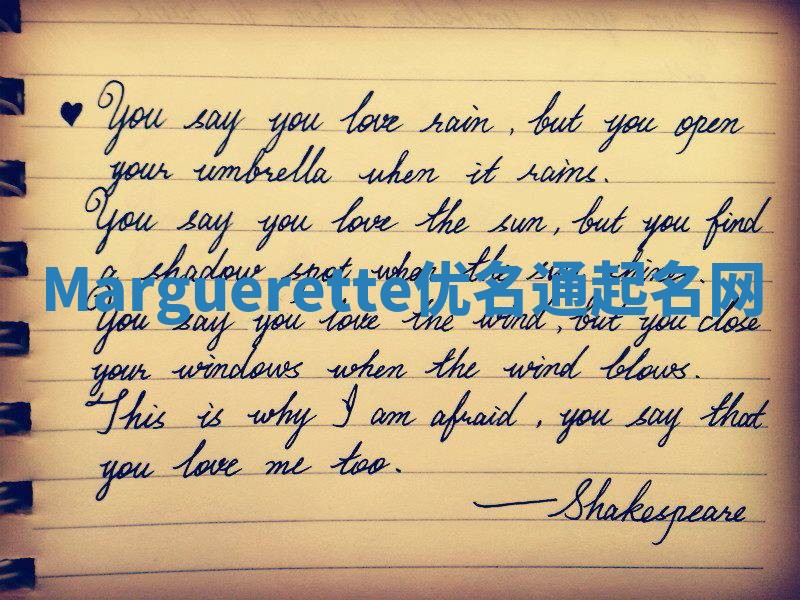 ♥ You say you love rain, but you open
your umbrella when it rains.
You say you love the sun, but you find
a shadow spot when the sun shines.
Marguerette优名通起名网
You say you love the wind, but you close
your windows when the wind blows.
This is why I am afraid, you say that
you love me too.
—Shakespeare